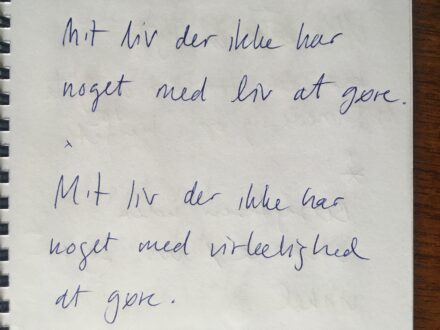 Mit liv der ikke har
noget med liv at gøre.
Mit liv der ikke har
noget med virkelighed
at gøre.